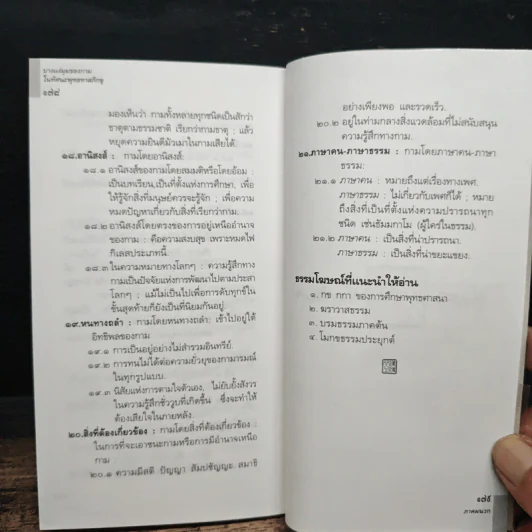 ยาระงับผลของกาม
ในทัศนะพุทธทาสภิกขุ
๑๗๘
มองเห็นว่า กามทั้งหลายทุกชนิดเป็นสักว่า
ธาตุตามธรรมชาติ เรียกว่ากามธาตุ ; แล้ว
หยุดความยินดีมัวเมาในกามเสียได้.
๑๘.อานิสงส์ : กามโดยอานิสงส์:
๑๘.๑ อานิสงส์ของกามโดยสมมติหรือโดยอ้อม :
เป็นบทเรียน,เป็นที่ตั้งแห่งการศึกษา, เพื่อ
ให้รู้จักสิ่งที่มนุษย์ควรจะรู้จัก ; เพื่อความ
หมดปัญหาเกี่ยวกับสิ่งที่เรียกว่ากาม.
๑๘.๒ อานิสงส์โดยตรงของการอยู่เหนืออำนาจ
ของกาม : คือความสงบสุข เพราะหมดไฟ
กิเลสประเภทนี้.
๑๘.๓ ในความหมายทางโลกๆ : ความรู้สึกทาง
กามเป็นปัจจัยแห่งการพัฒนาไปตามประสา
โลกๆ ; แม้ไม่เป็นไปเพื่อการดับทุกข์ใน
ขั้นสุดท้ายก็ยังเป็นที่นิยมกันอยู่.
๑๙.หนทางถลำ : กามโดยหนทางถลำ; เข้าไปอยู่ใต้
อิทธิพลของกาม
๑๙.๑ การเป็นอยู่อย่างไม่สำรวมอินทรีย์.
๑๙.๒ การทนไม่ได้ต่อความยั่วยุของกามารมณ์
ในทุกรูปแบบ.
๑๙.๓ นิสัยแห่งการตามใจตัวเอง, ไม่ยับยั้งสังวร
ในความรู้สึกชั่ววูบที่เกิดขึ้น ซึ่งจะทำให้
ต้องเสียใจในภายหลัง.
๒๐.สิ่งที่ต้องเกี่ยวข้อง : กามโดยสิ่งที่ต้องเกี่ยวข้อง :
ในการที่จะเอาชนะกามหรือการมีอำนาจเหนือ
กาม :
๒๐.๑ ความมีสติ ปัญญา สัมปชัญญะ สมาธิ
อย่างเพียงพอ และรวดเร็ว.
๒๐.๒ อยู่ในท่ามกลางสิ่งแวดล้อมที่ไม่สนับสนุน
ความรู้สึกทางกาม.
๒๑.ภาษาคน-ภาษาธรรม : กามโดยภาษาคน-ภาษา
ธรรม:
๒๑.๑ ภาษาคน : หมายถึงแต่เรื่องทางเพศ.
ภาษาธรรม : ไม่เกี่ยวกับเพศก็ได้ ; หมาย
ถึงสิ่งที่เป็นที่ตั้งแห่งความปรารถนาทุก
ชนิด เช่นธัมมกาโม (ผู้ใคร่ในธรรม).
๒๑.๒ ภาษาคน : เป็นสิ่งที่น่าปรารถนา.
ภาษาธรรม : เป็นสิ่งที่น่าขยะแขยง.
ธรรมโฆษณ์ที่แนะนำให้อ่าน
๑. กข กกา ของการศึกษาพุทธศาสนา
๒. ฆราวาสธรรม
๓. บรมธรรมภาคต้น
๔. โมกขธรรมประยุกต์
๑๗๙
ภาคผนวก